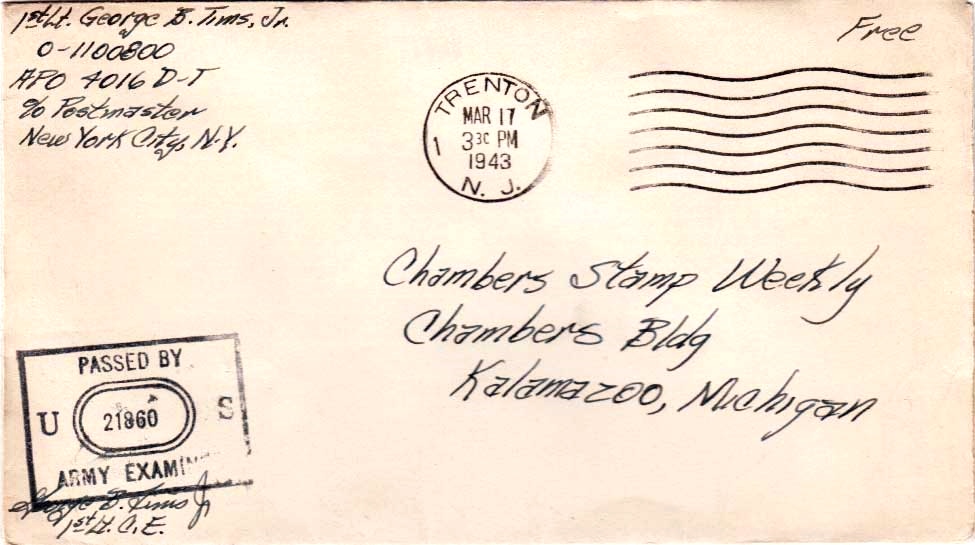 1st Lt. George B. Tims, Jr.
O-1100800
APO 4016 D-T
c/o Postmaster
New York City, N.Y.
Free
TRENTON
1
MAR 17
3 30 PM
1943
N. J.
Chambers Stamp Weekly
Chambers Bldg
Kalamazoo, Michigan
PASSED BY
U 21860 S
ARMY EXAMIN
George B. Tims Jr
1st Lt. C.E.